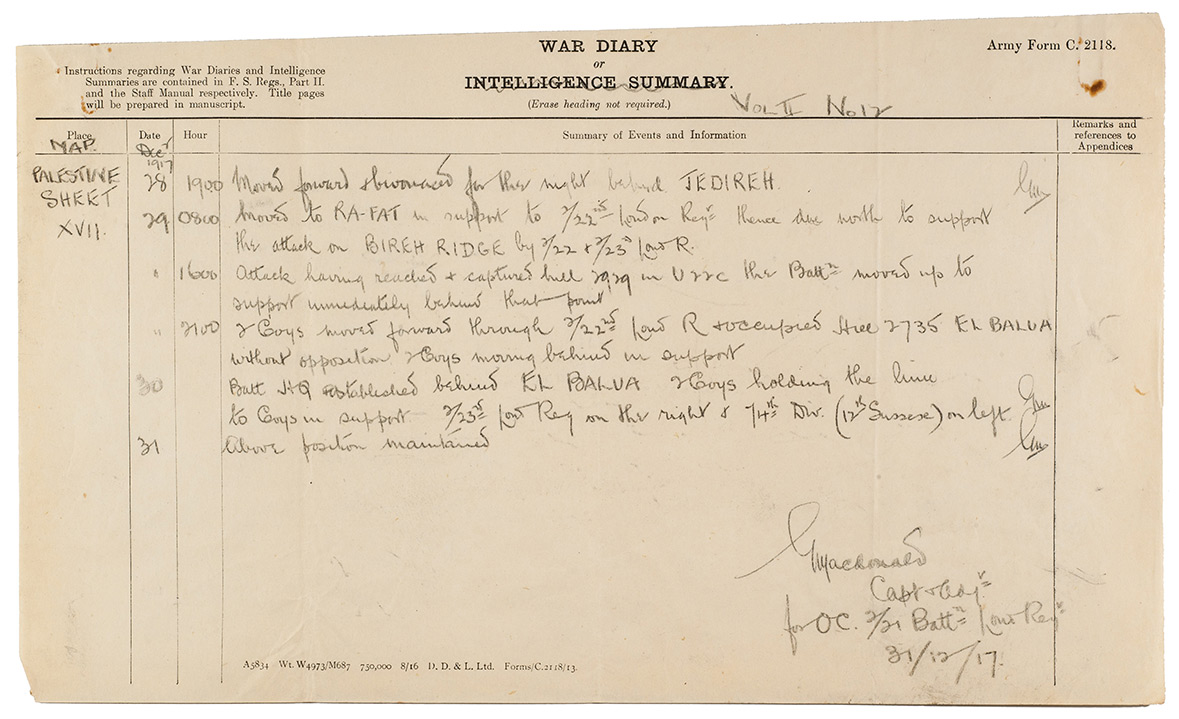 WAR DIARY
or
INTELLIGENCE SUMMARY.
(Erase heading not required.)
Army Form C. 2118.
Instructions regarding War Diaries and Intelligence
Summaries are contained in F. S. Regs., Part II.
and the Staff Manual respectively. Title pages
will be prepared in manuscript.
VOL II No 12
Place
MAP.
Date
Decr
1917
Hour
Summary of Events and Information
Remarks and
references to
Appendices
PALESTINE
SHEET
XVII.
28 1900 Moved forward & bivouaced for the night behind JEDIREH.
29 0800 Moved to RA-FAT in support to 2/22nd London Regt thence due north to support
the attack on BIREH RIDGE by 2/22 & 2/23rd Lond R.
" 1600 Attack having reached & captured hill 2929 in U22c the Battn moved up to
support immediately behind that point
" 2100 2 Coys moved forward through 2/22nd Lond R & occupied Hill 2735 EL BALUA
without opposition 2 Coys moving behind in support
30 Batt HQ established behind EL BALUA 2 Coys holding the line
to Coys in support. 2/23rd Lond Reg on the right & 74th Div. (12th Sussex) on left.
31 Above position maintained
GMacdonald
Capt & Adjr
for OC. 2/21 Battn Lond Regt
31/12/17.
A5834 Wt. W4973/M687 750,000 8/16 D. D. & L. Ltd. Forms/C.2118/13.